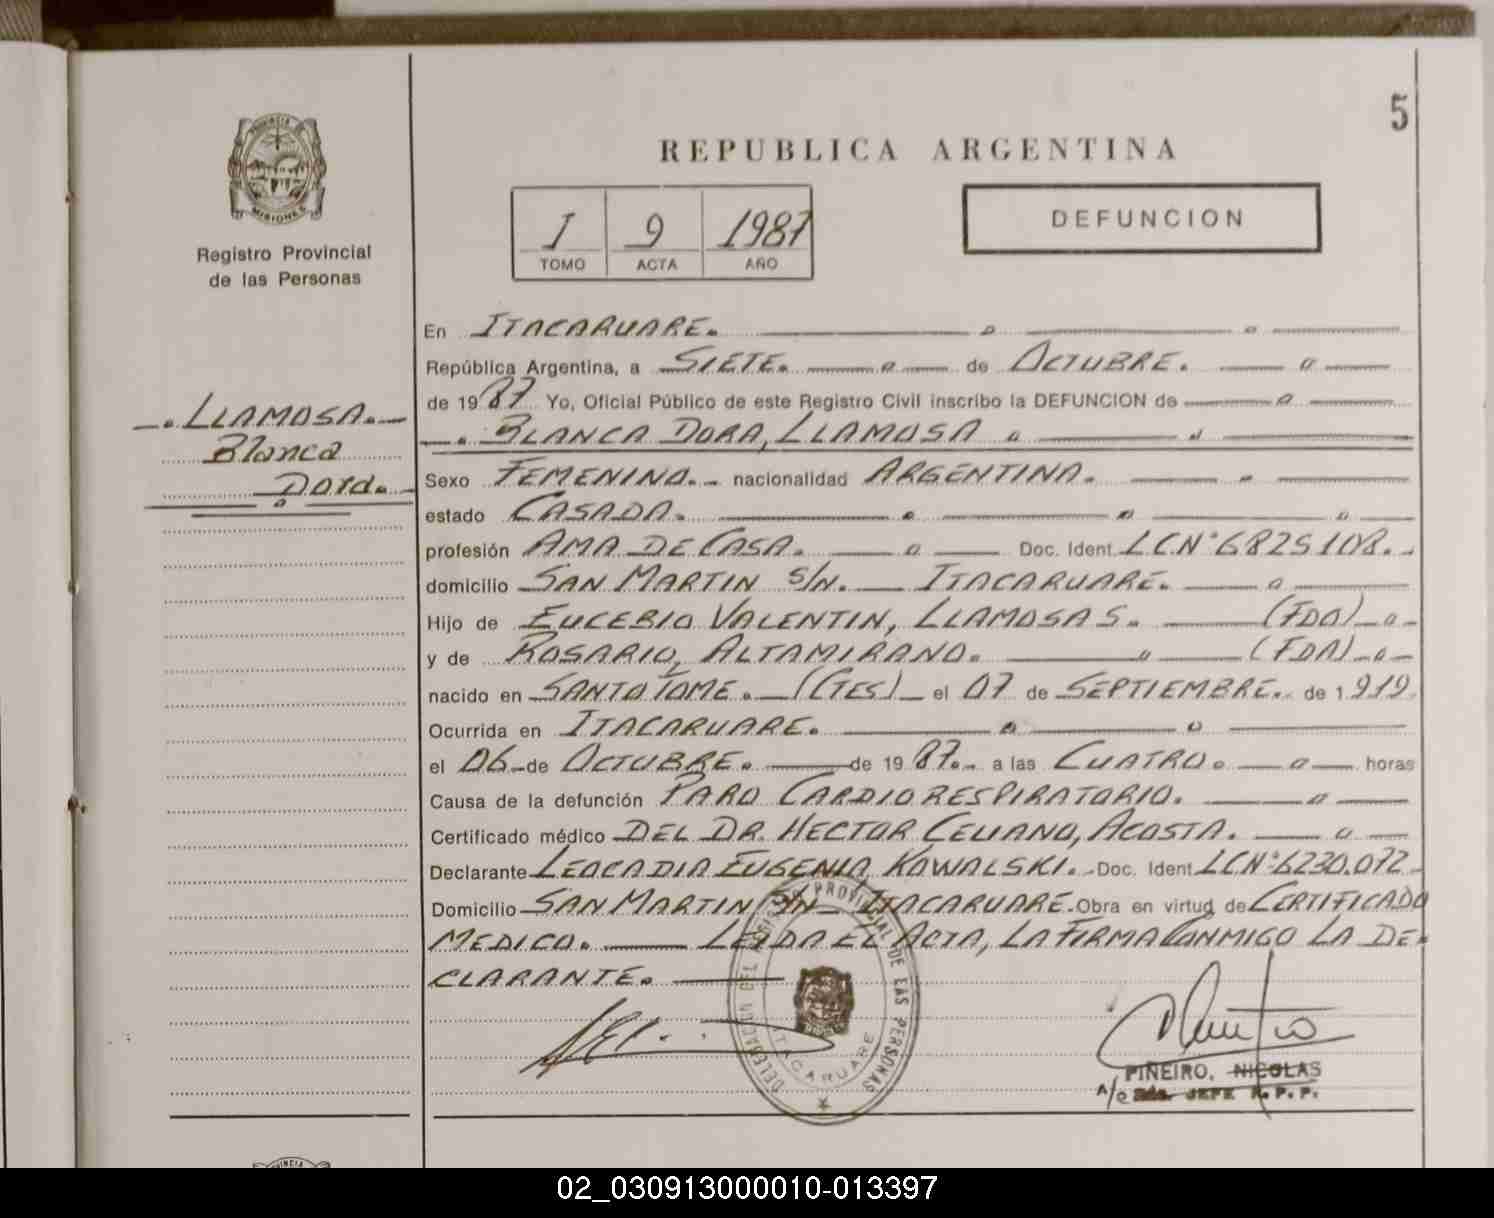 5
PROVINCIA DE
MISIONES
Registro Provincial
de las Personas
REPUBLICA ARGENTINA
I 9 1987
TOMO ACTA AÑO
DEFUNCION
LLAMOSA.
Blanca
Dora.
En ITACARUARE.
República Argentina, a SIETE. de OCTUBRE.
de 1987 Yo, Oficial Público de este Registro Civil inscribo la DEFUNCION de
BLANCA DORA, LLAMOSA
Sexo FEMENINO. nacionalidad ARGENTINA.
estado CASADA.
profesión AMA DE CASA. Doc. Ident. LCN° 6825108.
domicilio SAN MARTIN S/N. ITACARUARE.
Hijo de EUCEBIO VALENTIN, LLAMOSAS. (FDO)
y de ROSARIO, ALTAMIRANO. (FDA)
nacido en SANTO TOME. (CTES) el 07 de SEPTIEMBRE. de 1.919.
Ocurrida en ITACARUARE.
el 06 de OCTUBRE. de 1987. a las CUATRO. horas
Causa de la defunción PARO CARDIORESPIRATORIO.
Certificado médico DEL DR. HECTOR CELIANO, ACOSTA.
Declarante LEOCADIA EUGENIA KOWALSKI. Doc. Ident. LCN° 6230.072
Domicilio SAN MARTIN S/N ITACARUARE. Obra en virtud de CERTIFICADO
MEDICO. LEIDA EL ACTA, LA FIRMA CONMIGO LA DE-
CLARANTE.
DELEGACION DEL REGISTRO PROVINCIAL DE LAS PERSONAS
ITACARUARE
PIÑEIRO, NICOLAS
A/c JEFE R.P.P.
02_030913000010-013397